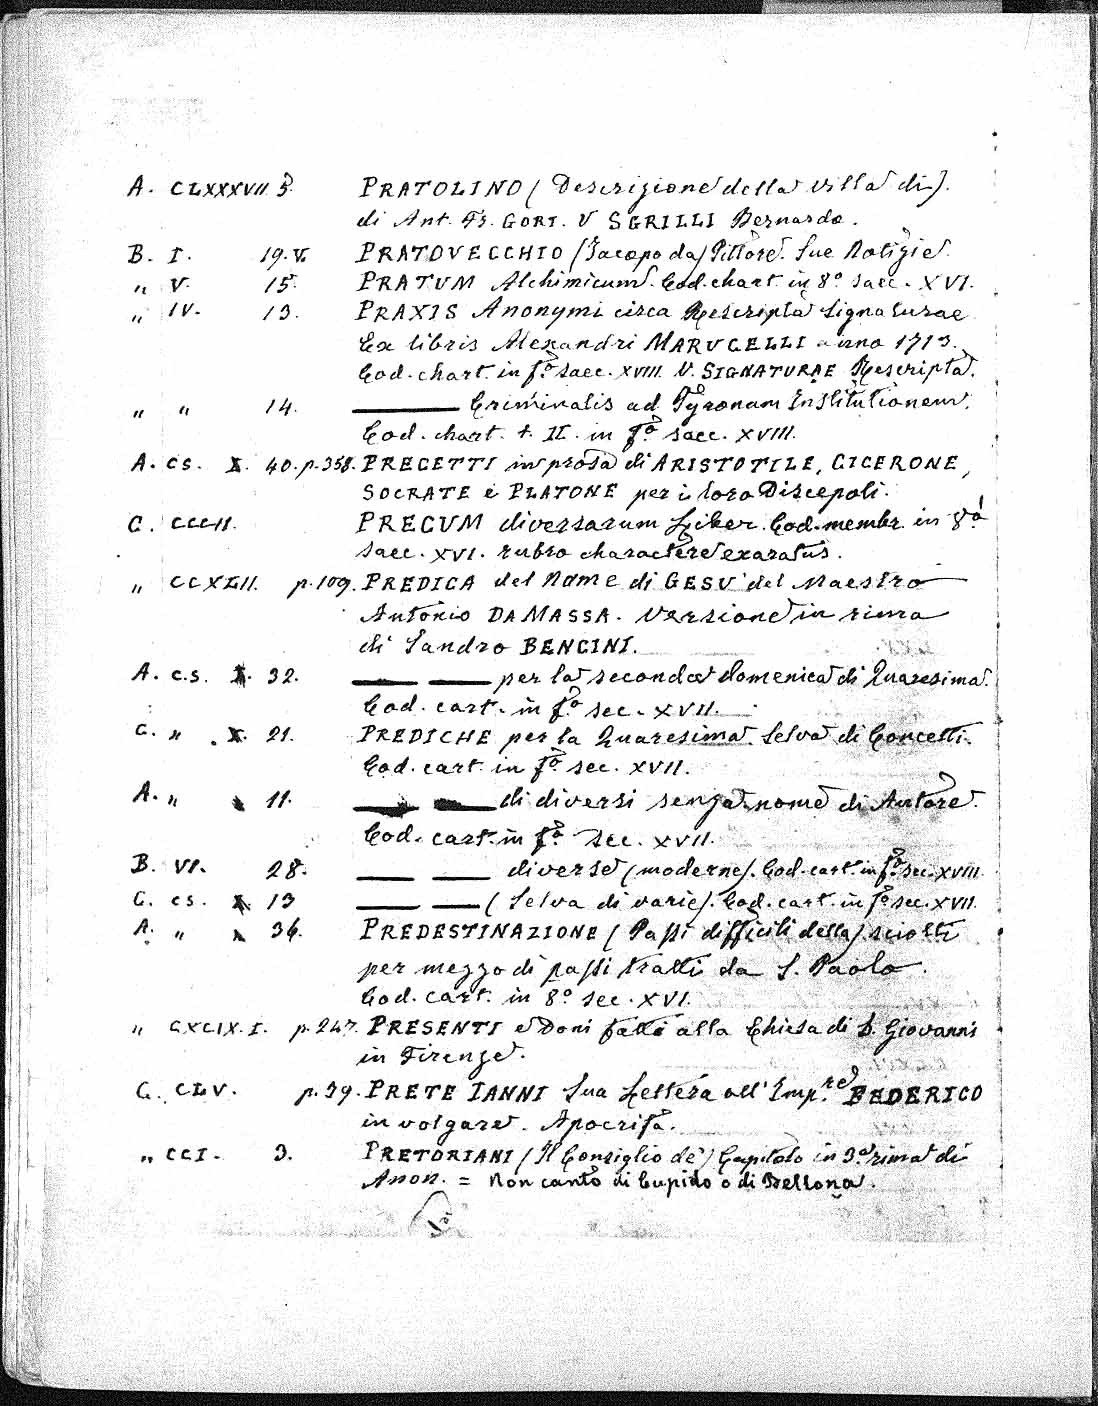 A. CLXXXVII 5. PRATOLINO (Descrizione della villa di).
di Ant. Fr. GORI. V SGRILLI Bernardo.
B. I. 19. V. PRATOVECCHIO (Jacopo da) Pittore. Sue Notizie.
„ V. 15. PRATUM Alchimicum. Cod. chart. in 8° saec. XVI.
„ IV. 13. PRAXIS Anonymi circa Rescripta Signaturae
Ex libris Alexandri MARUCELLI anno 1713.
Cod. chart. in f.° saec. XVIII. V. SIGNATURAE Rescripta.
„ „ 14. ——— Criminalis ad Tyronum Institutionem.
Cod. chart. t. II. in f.° saec. XVIII.
A. cs. X. 40. p. 358. PRECETTI in prosa di ARISTOTILE, CICERONE,
SOCRATE e PLATONE per i loro Discepoli.
C. CCCII. PRECUM diversarum Liber. Cod. membr. in 8.°
saec. XVI. rubro charactere exaratus.
„ CCXLII. p. 109. PREDICA del Nome di GESU' del Maestro
Antonio DA MASSA. Versione in rima
di Sandro BENCINI.
A. c.s. X. 32. —— —— per la seconda Domenica di Quaresima.
Cod. cart. in f.° sec. XVII.
C. „ X. 21. PREDICHE per la Quaresima. Selva di Concetti.
Cod. cart. in f.° sec. XVII.
A. „ 11. —— —— di diversi senza nome di Autore.
Cod. cart. in f.° sec. XVII.
B. VI. 28. —— —— diverse (moderne). Cod. cart. in f.° sec. XVIII.
C. cs. X. 13 —— —— (Selva di varie). Cod. cart. in f.° sec. XVII.
A. „ 36. PREDESTINAZIONE (Passi difficili della) sciolti
per mezzo di passi tratti da S. Paolo.
Cod. cart. in 8° sec. XVI.
„ CXCIX. I. p. 247. PRESENTI e Doni fatti alla Chiesa di S. Giovanni
in Firenze.
C. CLV. p. 39. PRETE IANNI Sua Lettera all' Imp.re FEDERICO
in volgare. Apocrifa.
„ CCI. 3. PRETORIANI (Il Consiglio de') Capitolo in 3.a rima di
Anon. = Non canto di Cupido o di Bellona.